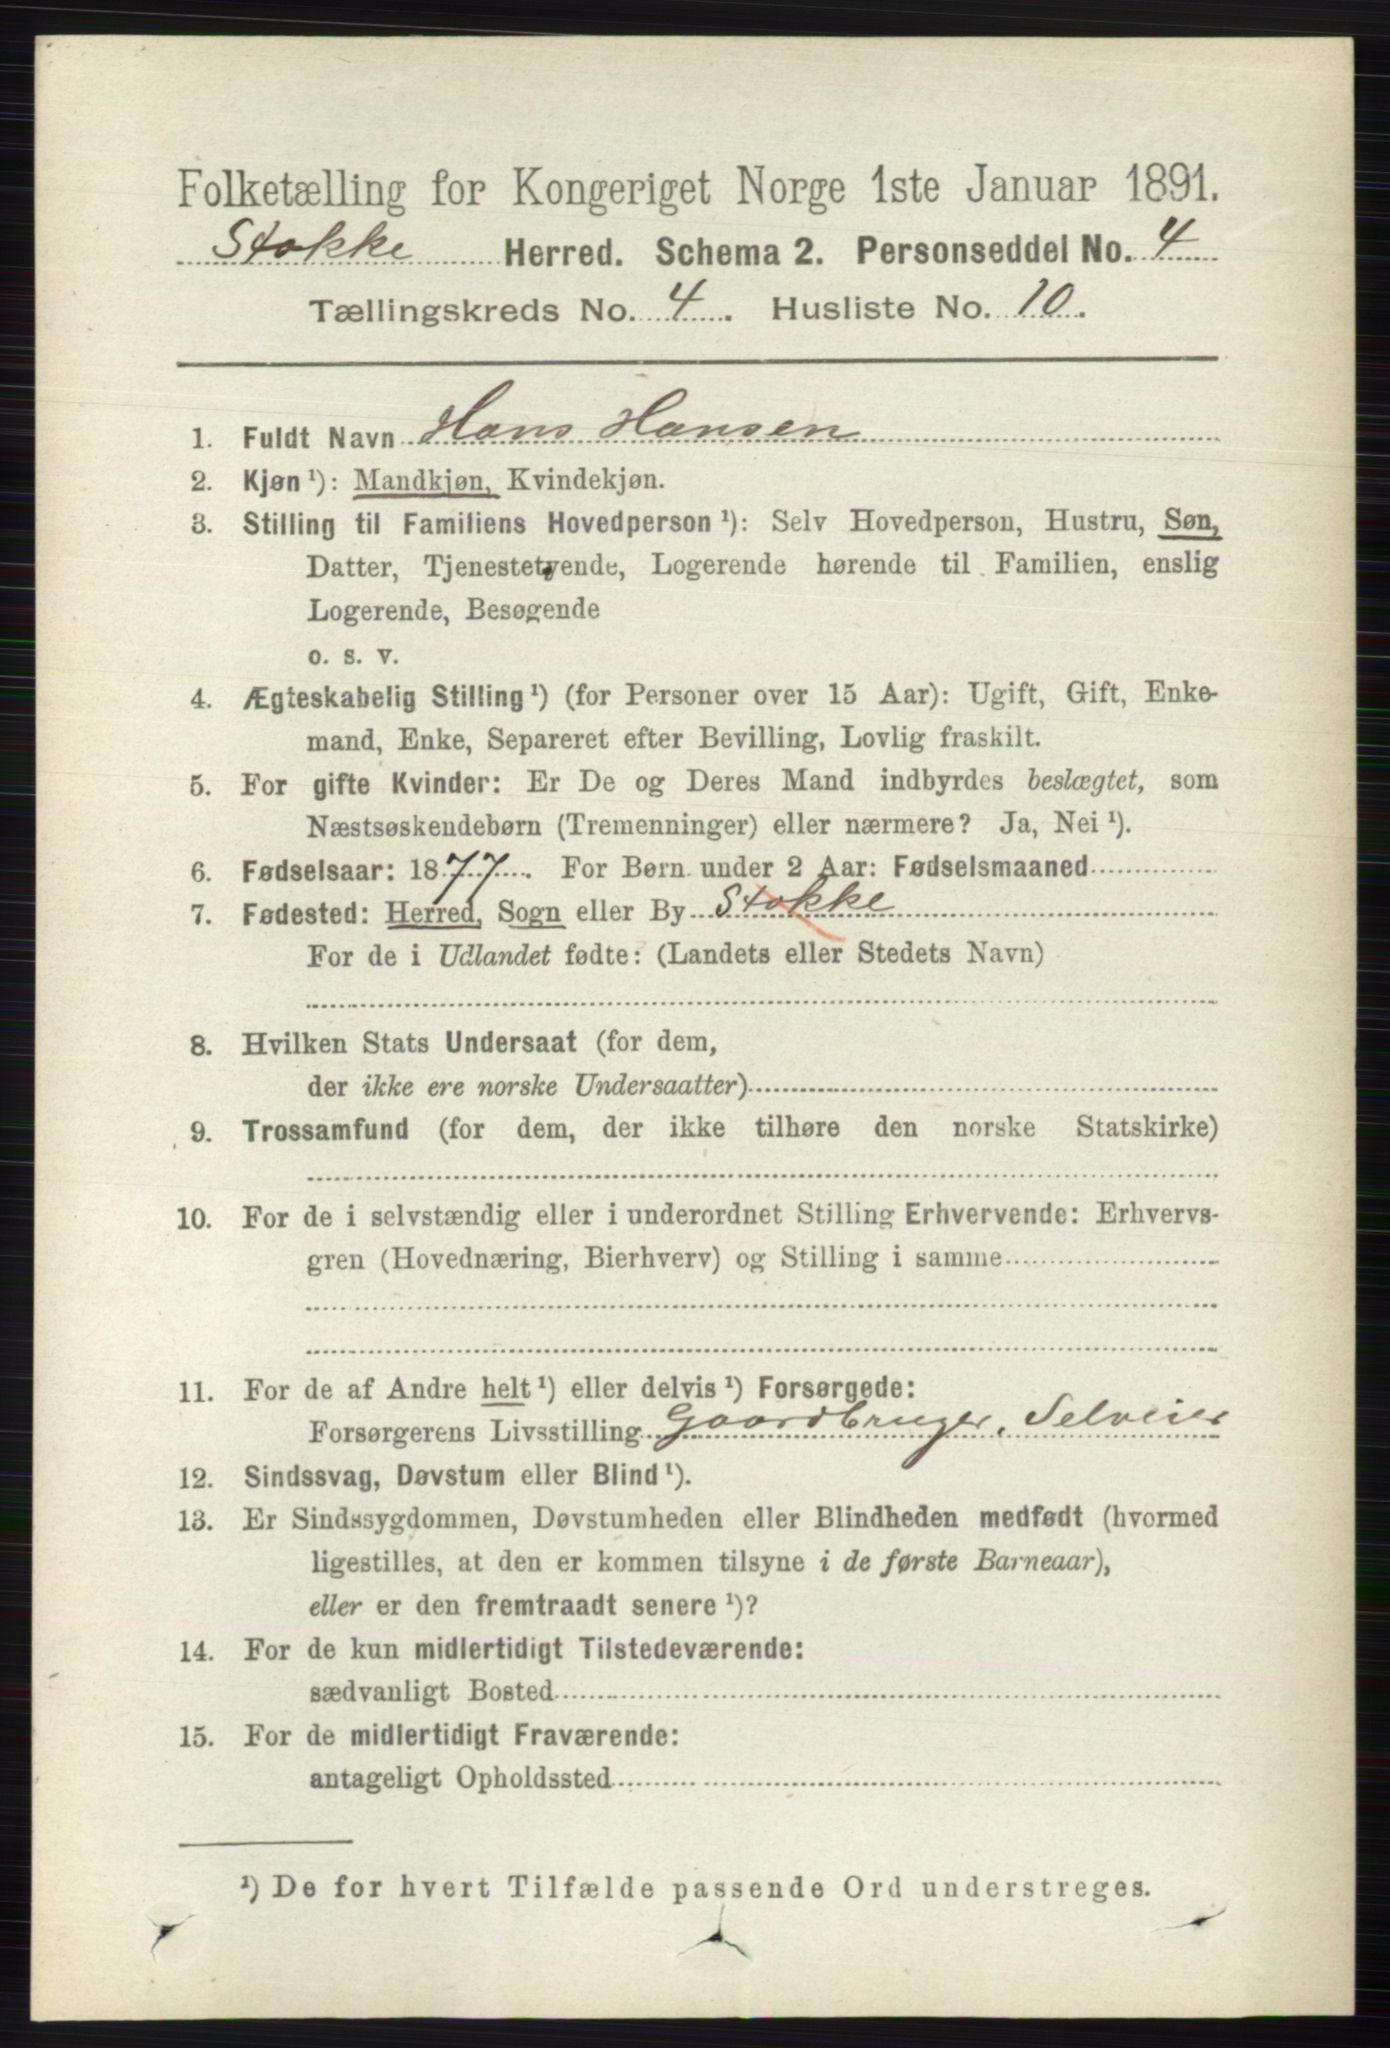 Folketælling for Kongeriget Norge 1ste Januar 1891.
Stokke Herred. Schema 2. Personseddel No. 4
Tællingskreds No. 4. Husliste No. 10.
1. Fuldt Navn Hans Hansen
2. Kjøn ¹): Mandkjøn, Kvindekjøn.
3. Stilling til Familiens Hovedperson ¹): Selv Hovedperson, Hustru, Søn,
Datter, Tjenestetyende, Logerende hørende til Familien, enslig
Logerende, Besøgende
o. s. v.
4. Ægteskabelig Stilling ¹) (for Personer over 15 Aar): Ugift, Gift, Enke-
mand, Enke, Separeret efter Bevilling, Lovlig fraskilt.
5. For gifte Kvinder: Er De og Deres Mand indbyrdes beslægtet, som
Næstsøskendebørn (Tremenninger) eller nærmere? Ja, Nei ¹).
6. Fødselsaar: 1877. For Børn under 2 Aar: Fødselsmaaned
7. Fødested: Herred, Sogn eller By Stokke
For de i Udlandet fødte: (Landets eller Stedets Navn)
8. Hvilken Stats Undersaat (for dem,
der ikke ere norske Undersaatter)
9. Trossamfund (for dem, der ikke tilhøre den norske Statskirke)
10. For de i selvstændig eller i underordnet Stilling Erhvervende: Erhvervs-
gren (Hovednæring, Bierhverv) og Stilling i samme
11. For de af Andre helt ¹) eller delvis ¹) Forsørgede:
Forsørgerens Livsstilling Gaardbruger, Selveier
12. Sindssvag, Døvstum eller Blind ¹).
13. Er Sindssygdommen, Døvstumheden eller Blindheden medfødt (hvormed
ligestilles, at den er kommen tilsyne i de første Barneaar),
eller er den fremtraadt senere ¹)?
14. For de kun midlertidigt Tilstedeværende:
sædvanligt Bosted
15. For de midlertidigt Fraværende:
antageligt Opholdssted
¹) De for hvert Tilfælde passende Ord understreges.